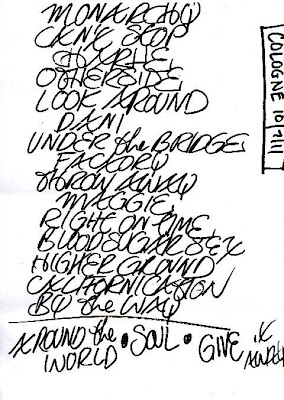 MONARCHOU
CKN'E STOP
CHARLIE
OTHERSIDE
LOOK AROUND
DANI
UNDER the BRIDGE
FACTORY
THROW AWAY
MAGGIE
RIGHT ON TIME
BLOOD SUGAR SEX
HIGHER GROUND
CALIFORNICATION
BY the WAY
AROUND the WORLD • SOUL • GIVE it AWAY
COLOGNE 10/7/11